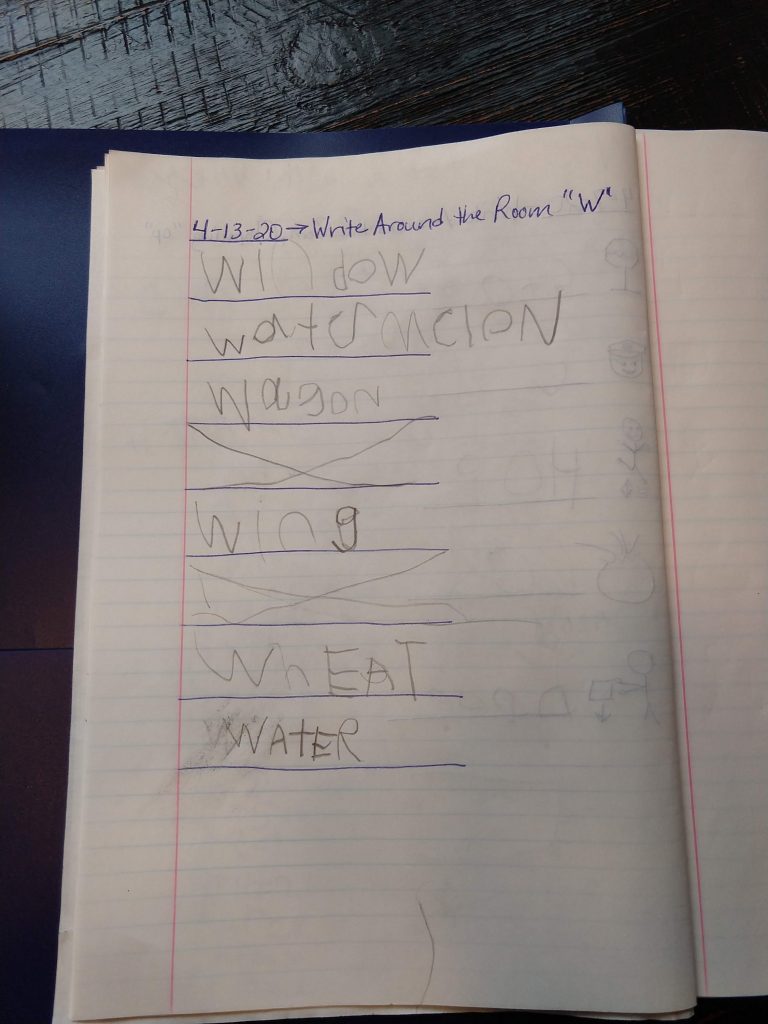 4-13-20→Write Around the Room "W"
WindoW
watermeloN
Wagon
Wing
WhEAT
WATER